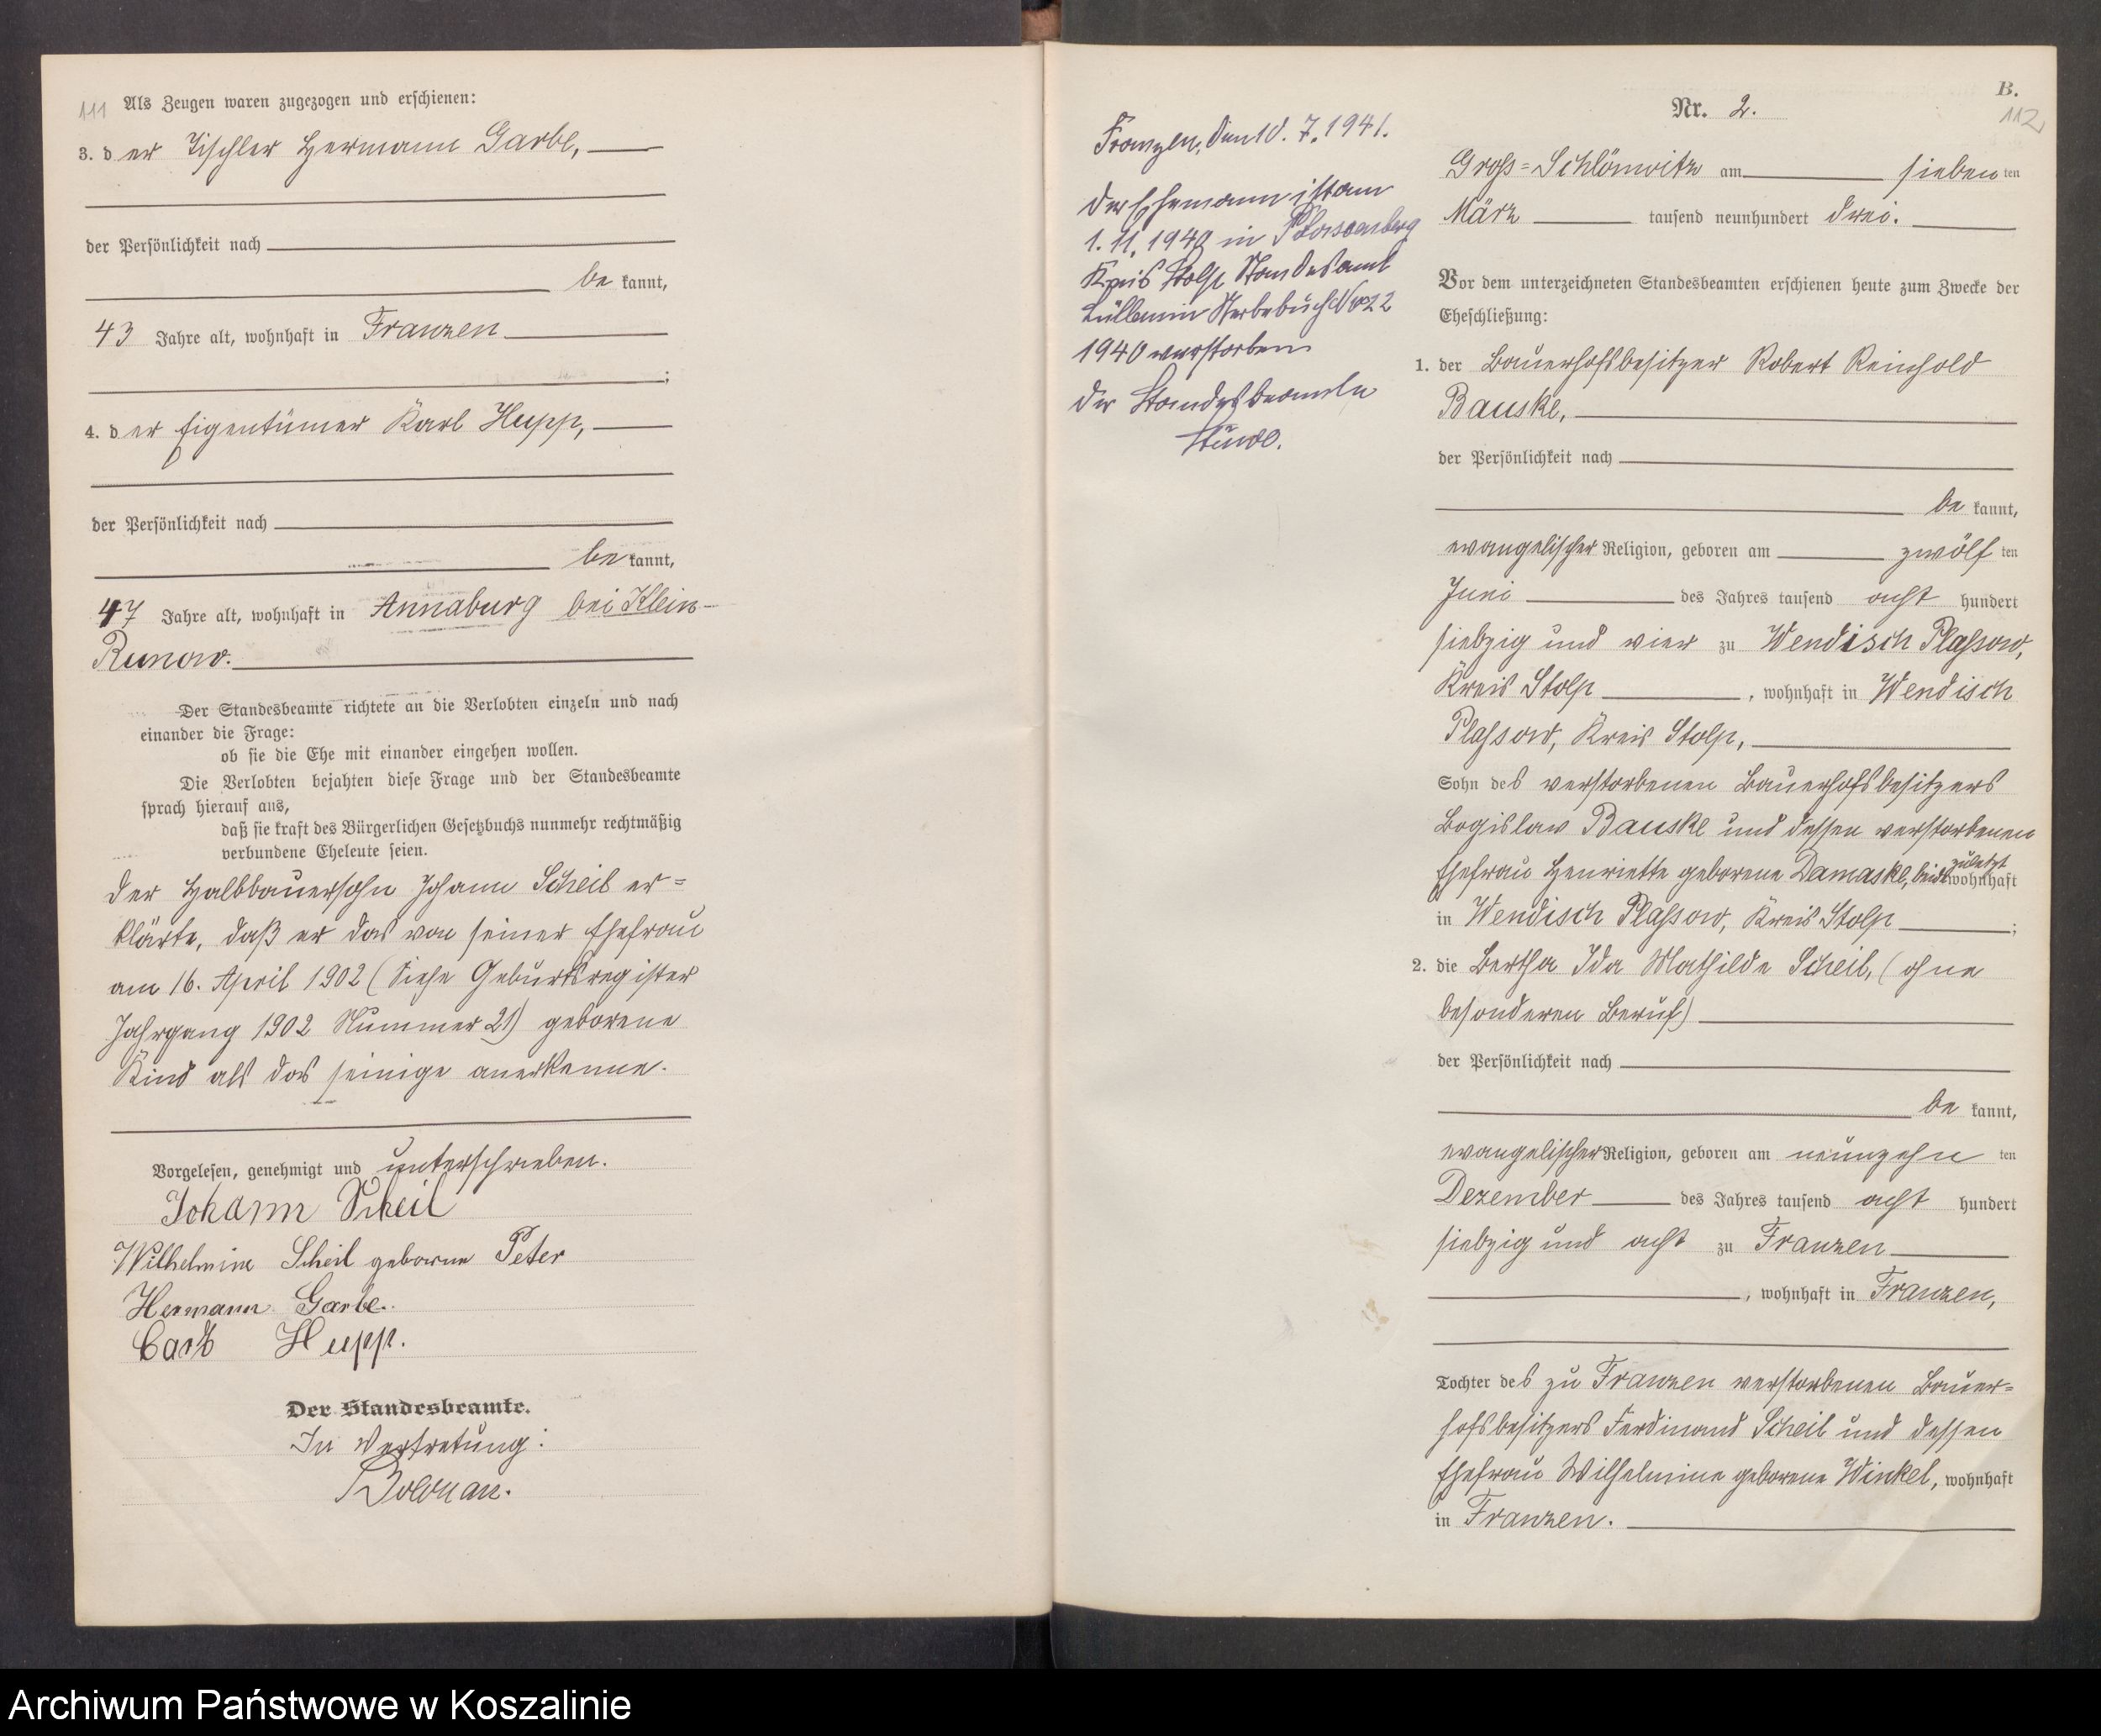 111
Als Zeugen waren zugezogen und erschienen:
3. der Tischler Hermann Garbe,
der Persönlichkeit nach
be kannt,
43 Jahre alt, wohnhaft in Franzen
;
4. der Eigentümer Karl Hupp,
der Persönlichkeit nach
be kannt,
47 Jahre alt, wohnhaft in Annaburg bei Klein-
Runow.
Der Standesbeamte richtete an die Verlobten einzeln und nach
einander die Frage:
ob sie die Ehe mit einander eingehen wollen.
Die Verlobten bejahten diese Frage und der Standesbeamte
sprach hierauf aus,
daß sie kraft des Bürgerlichen Gesetzbuchs nunmehr rechtmäßig
verbundene Eheleute seien.
Der Halbbauersohn Johann Scheil er=
klärte, daß er das von seiner Ehefrau
am 16. April 1902 (Siehe Geburtsregister
Jahrgang 1902 Nummer 21) geborene
Kind als das seinige anerkenne.
Vorgelesen, genehmigt und unterschrieben.
Johann Scheil
Wilhelmine Scheil geborne Peter
Hermann Garbe.
Carl Hupp.
Der Standesbeamte.
In Vertretung:
Franzen, den 10. 7. 1941.
Der Ehemann ist am
1. 11. 1940 in
Kreis Stolp Standesamt
Lüllemin Sterbebuch Nr 22
1940 verstorben
Der Standesbeamte
B.
Nr. 2.
112
Gross=Schlönwitz am siebenten
März tausend neunhundert drei.
Vor dem unterzeichneten Standesbeamten erschienen heute zum Zwecke der
Eheschließung:
1. der Bauerhofsbesitzer Robert Reinhold
Bauske,
der Persönlichkeit nach
be kannt,
evangelischer Religion, geboren am zwölf ten
Juni des Jahres tausend acht hundert
siebzig und vier zu Wendisch Plassow,
Kreis Stolp, wohnhaft in Wendisch
Plassow, Kreis Stolp,
Sohn des verstorbenen Bauerhofsbesitzers
Bogislaw Bauske und dessen verstorbenen
Ehefrau Henriette geborene Damaske, beide zuletzt wohnhaft
in Wendisch Plassow, Kreis Stolp;
2. die Bertha Ida Mathilde Scheil, (ohne
besonderen Beruf)
der Persönlichkeit nach
be kannt,
evangelischer Religion, geboren am neunzehn ten
Dezember des Jahres tausend acht hundert
siebzig und acht zu Franzen
, wohnhaft in Franzen,
Tochter des zu Franzen verstorbenen Bauer=
hofsbesitzers Ferdinand Scheil und dessen
Ehefrau Wilhelmine geborene Winkel, wohnhaft
in Franzen.
Archiwum Państwowe w Koszalinie